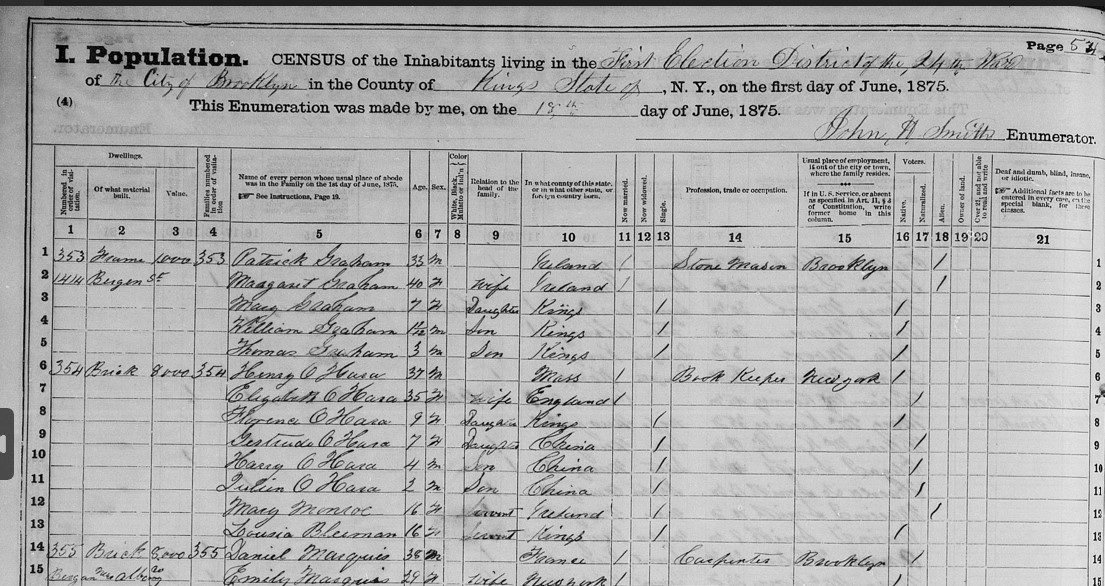 Page 54
I. Population. CENSUS of the Inhabitants living in the First Election District of the 24th Ward
of the City of Brooklyn in the County of Kings State of , N. Y., on the first day of June, 1875.
(4) This Enumeration was made by me, on the 18th day of June, 1875.
John H Smith Enumerator.
Numbered in order of visitation. Dwellings. Of what material built. Value. Families numbered in order of visitation. Name of every person whose usual place of abode was in the Family on the 1st day of June, 1875. See Instructions, Page 19. Age. Sex. Color White, Black, Mulatto or Ind'n Relation to the head of the family. In what county of this state, or in what other state, or foreign country born. Now married. Now widowed. Single. Profession, trade or occupation. Usual place of employment, if out of the city or town, where the family resides. If in U. S. Service, or absent as specified in Art. II, § 3 of Constitution, write former home in this column. Voters. Native. Naturalized. Alien. Owner of land. Over 21, and not able to read and write Deaf and dumb, blind, insane, or idiotic. Additional facts are to be entered in every case, on the special blank, for these classes.
1 2 3 4 5 6 7 8 9 10 11 12 13 14 15 16 17 18 19 20 21
1 353 Frame 1000 353 Patrick Graham 33 m Ireland / Stone Mason Brooklyn / 1
2 1414 Bergen St Margaret Graham 40 F Wife Ireland / / 2
3 Mary Graham 7 F Daughter Kings / / 3
4 William Graham m Son Kings / / 4
5 Thomas Graham 3 m Son Kings / / 5
6 354 Brick 8000 354 Henry O Hara 37 m Mass / Book Keeper New York / 6
7 Elizabeth O Hara 35 F Wife England / / 7
8 Florence O Hara 9 F Daughter Kings / / 8
9 Gertrude O Hara 7 F Daughter China / / 9
10 Harry O Hara 4 m Son China / / 10
11 Julien O Hara 2 m Son China / / 11
12 Mary Monroe 16 F Servent Ireland / / 12
13 Lousia Bleeman 16 F Servent Kings / / 13
14 355 Brick 8000 355 Daniel Marquis 38 m France / Carpenter Brooklyn / 14
15 Bergen Emily Marquis 29 F Wife New York / / 15